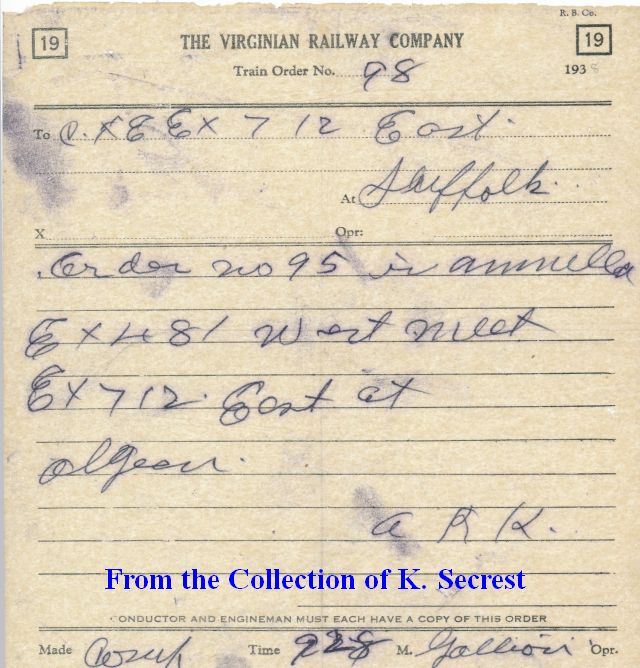 R. B. Co.
19 THE VIRGINIAN RAILWAY COMPANY 19
Train Order No. 98 193
To C. & E Ex 712 East
At Suffolk
X Opr:
Order no 95 is annulled
Ex 481 West meet
Ex 712 East at
A R K.
From the Collection of K. Secrest
CONDUCTOR AND ENGINEMAN MUST EACH HAVE A COPY OF THIS ORDER
Made Comp Time 928 M. Opr.